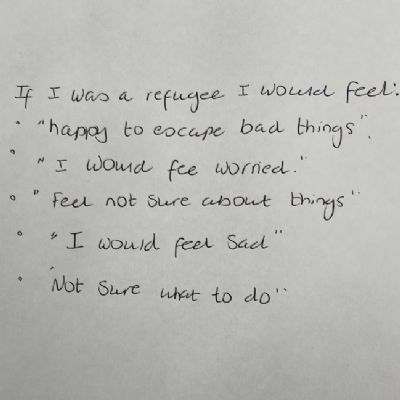 If I was a refugee I would feel:
• "happy to escape bad things".
• "I would fee worried."
• "Feel not sure about things"
• "I would feel sad"
• "Not sure what to do"